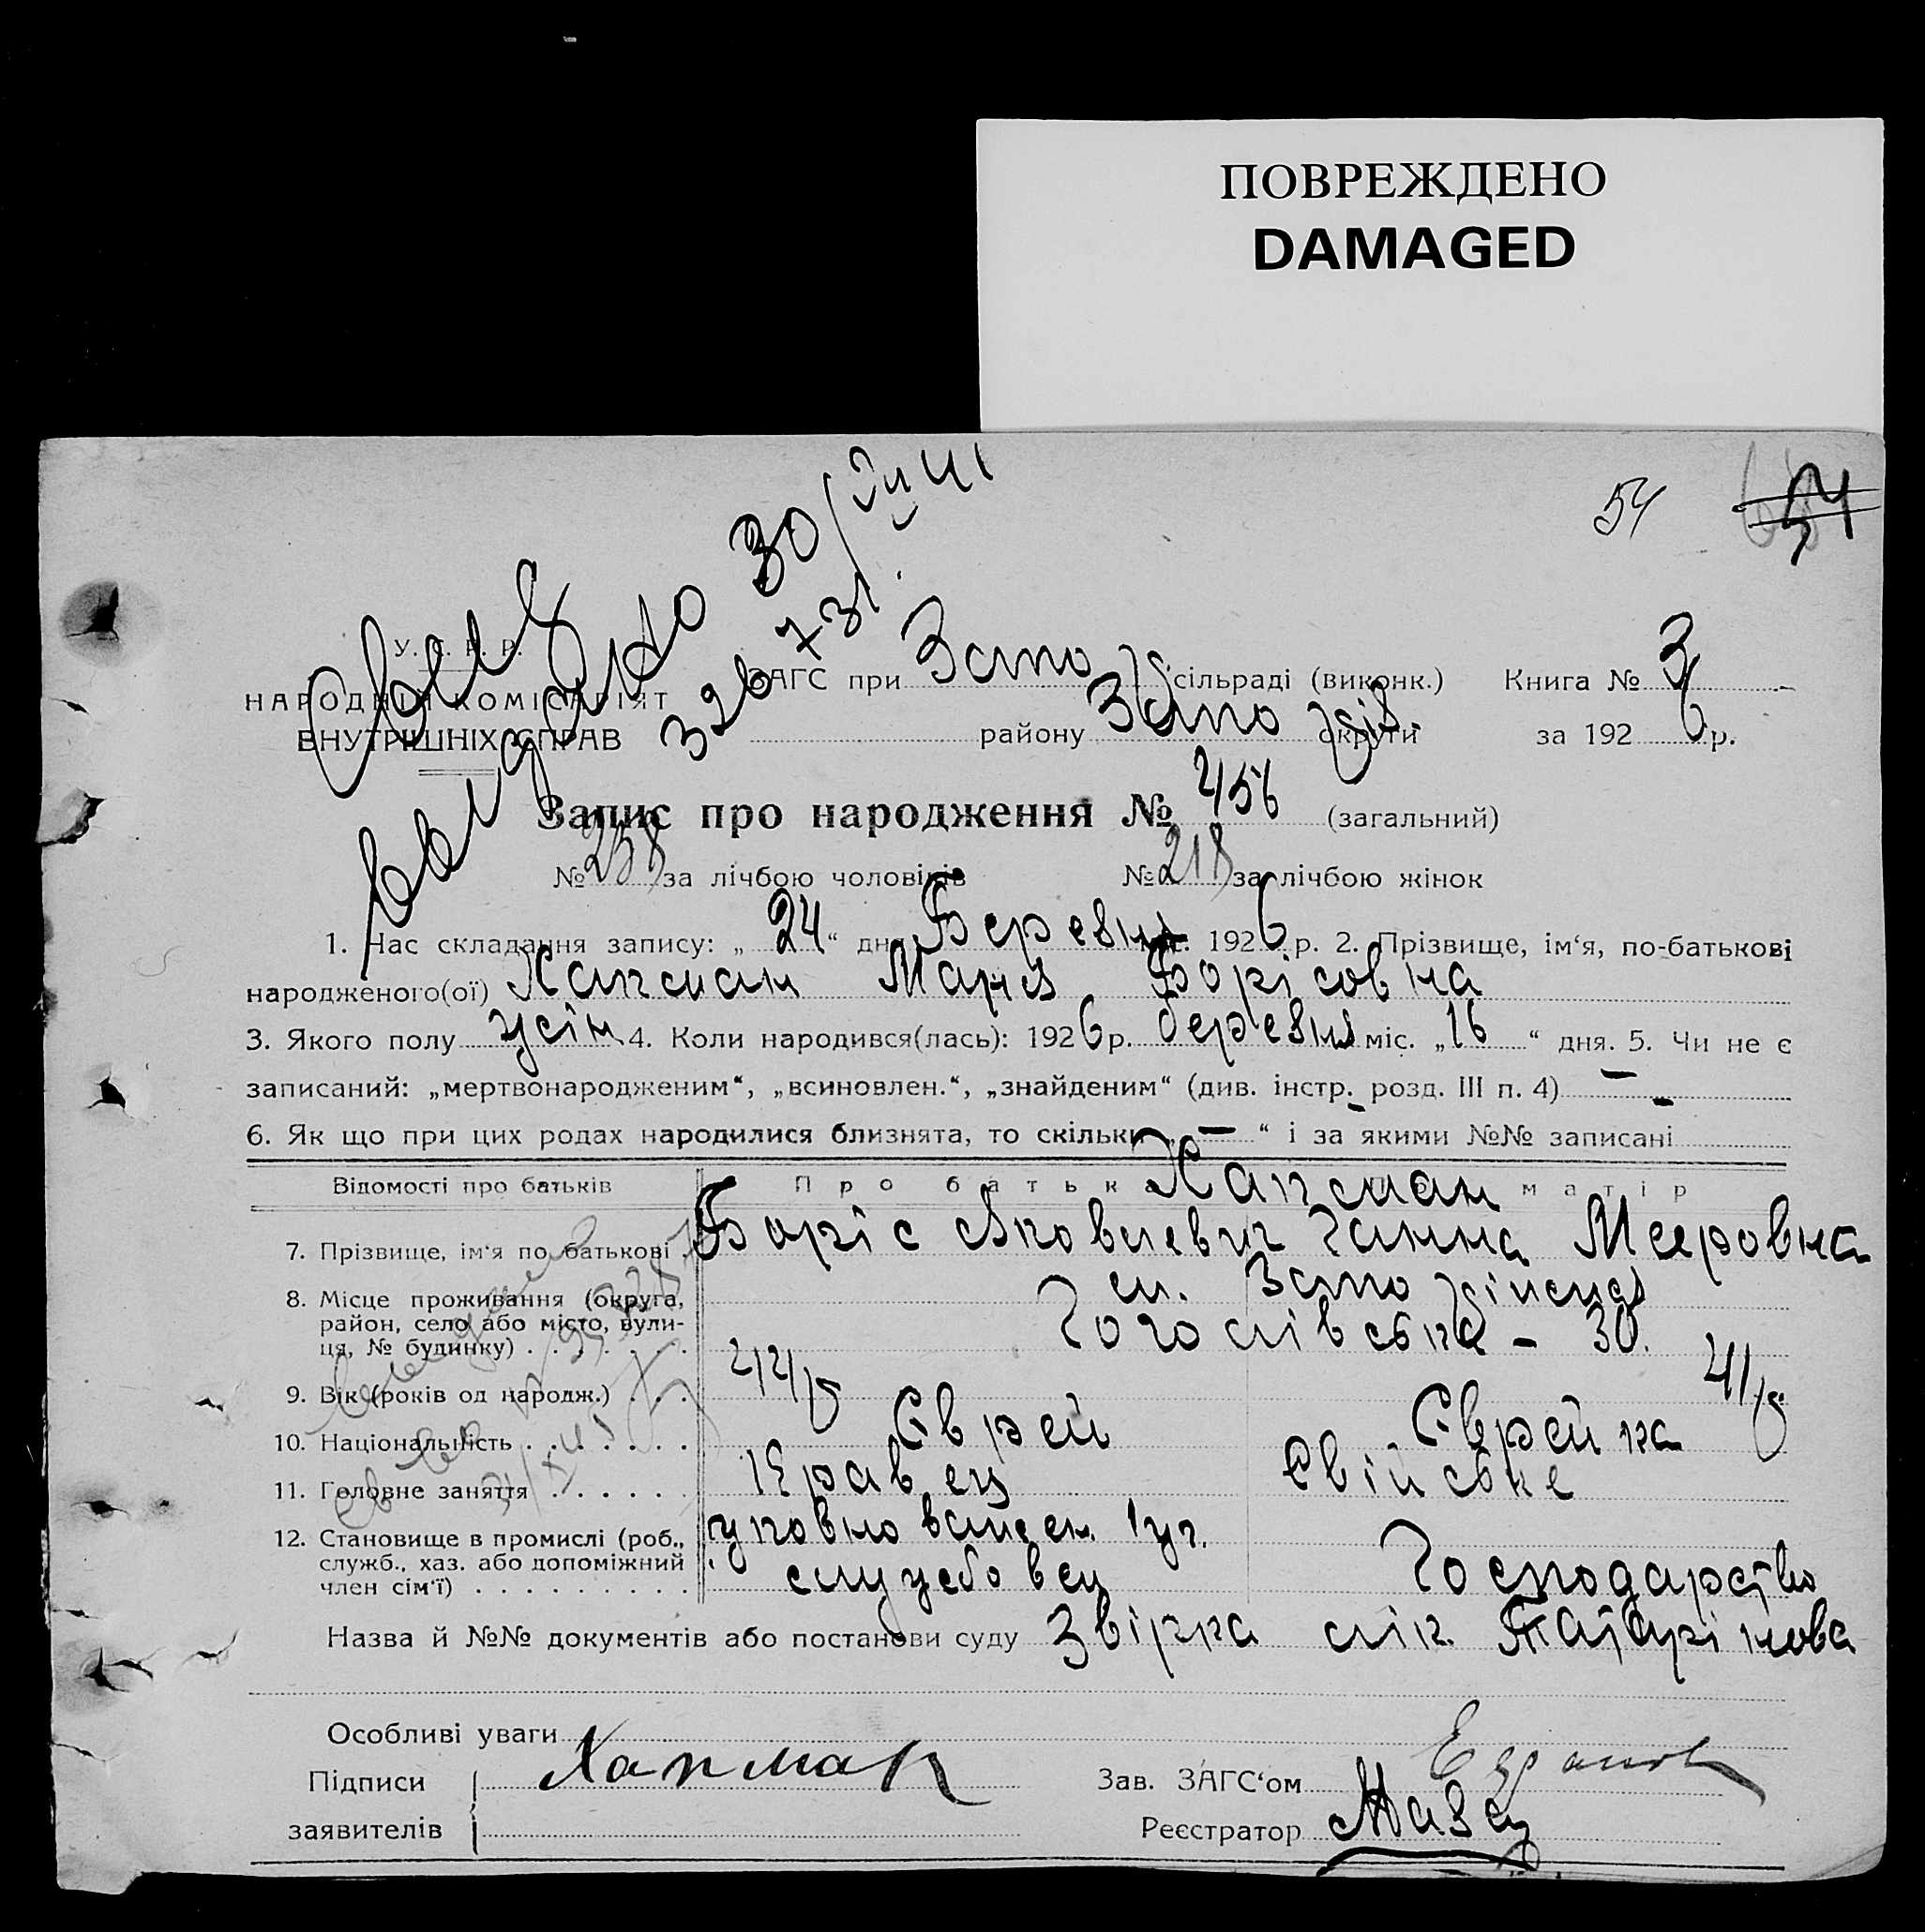 ПОВРЕЖДЕНО
DAMAGED
54 54
У. С. Р. Р.
НАРОДНІЙ КОМІСАРІЯТ
ВНУТРІШНІХ СПРАВ
30/VII 41
326731.
ЗАГС при Запо сільраді (виконк.) Книга № 3
району Запо округи за 1926 р.
Запис про народження № 456 (загальний)
№ 238 за лічбою чоловіків № 218 за лічбою жінок
1. Час складання запису: „24“ дня Березня міс. 1926 р. 2. Прізвище, ім‘я, по-батькові
народженого(ої) Хапсман Марія Борісовна
3. Якого полу жін. 4. Коли народився(лась): 1926 р. березня міс. „16“ дня. 5. Чи не є
записаний: „мертвонародженим“, „всиновлен.“, „знайденим“ (див. інстр. розд. III п. 4) —
6. Як що при цих родах народилися близнята, то скільки „—“ і за якими №№ записані —
Відомості про батьків Про батька матір
Хапсман
7. Прізвище, ім‘я по батькові . Боріс Яковлевич Ганна Мееровна
8. Місце проживання (округа, район, село або місто, вулиця, № будинку) . . . . . . . м. Запоріжжя
Гоголівська – 30.
9. Вік (років од народж.) . . . 42/р 41/р
10. Національність . . . . . . . Єврей Єврейка
11. Головне заняття . . . . . . Кравець Свійське
12. Становище в промислі (роб., служб., хаз. або допоміжний член сім‘ї) . . . . . . . . .
службовец Господарство
Назва й №№ документів або постанови суду Звірка лік. Татарінова
Особливі уваги
Підписи заявителів Хапман
Зав. ЗАГС‘ом
Реєстратор